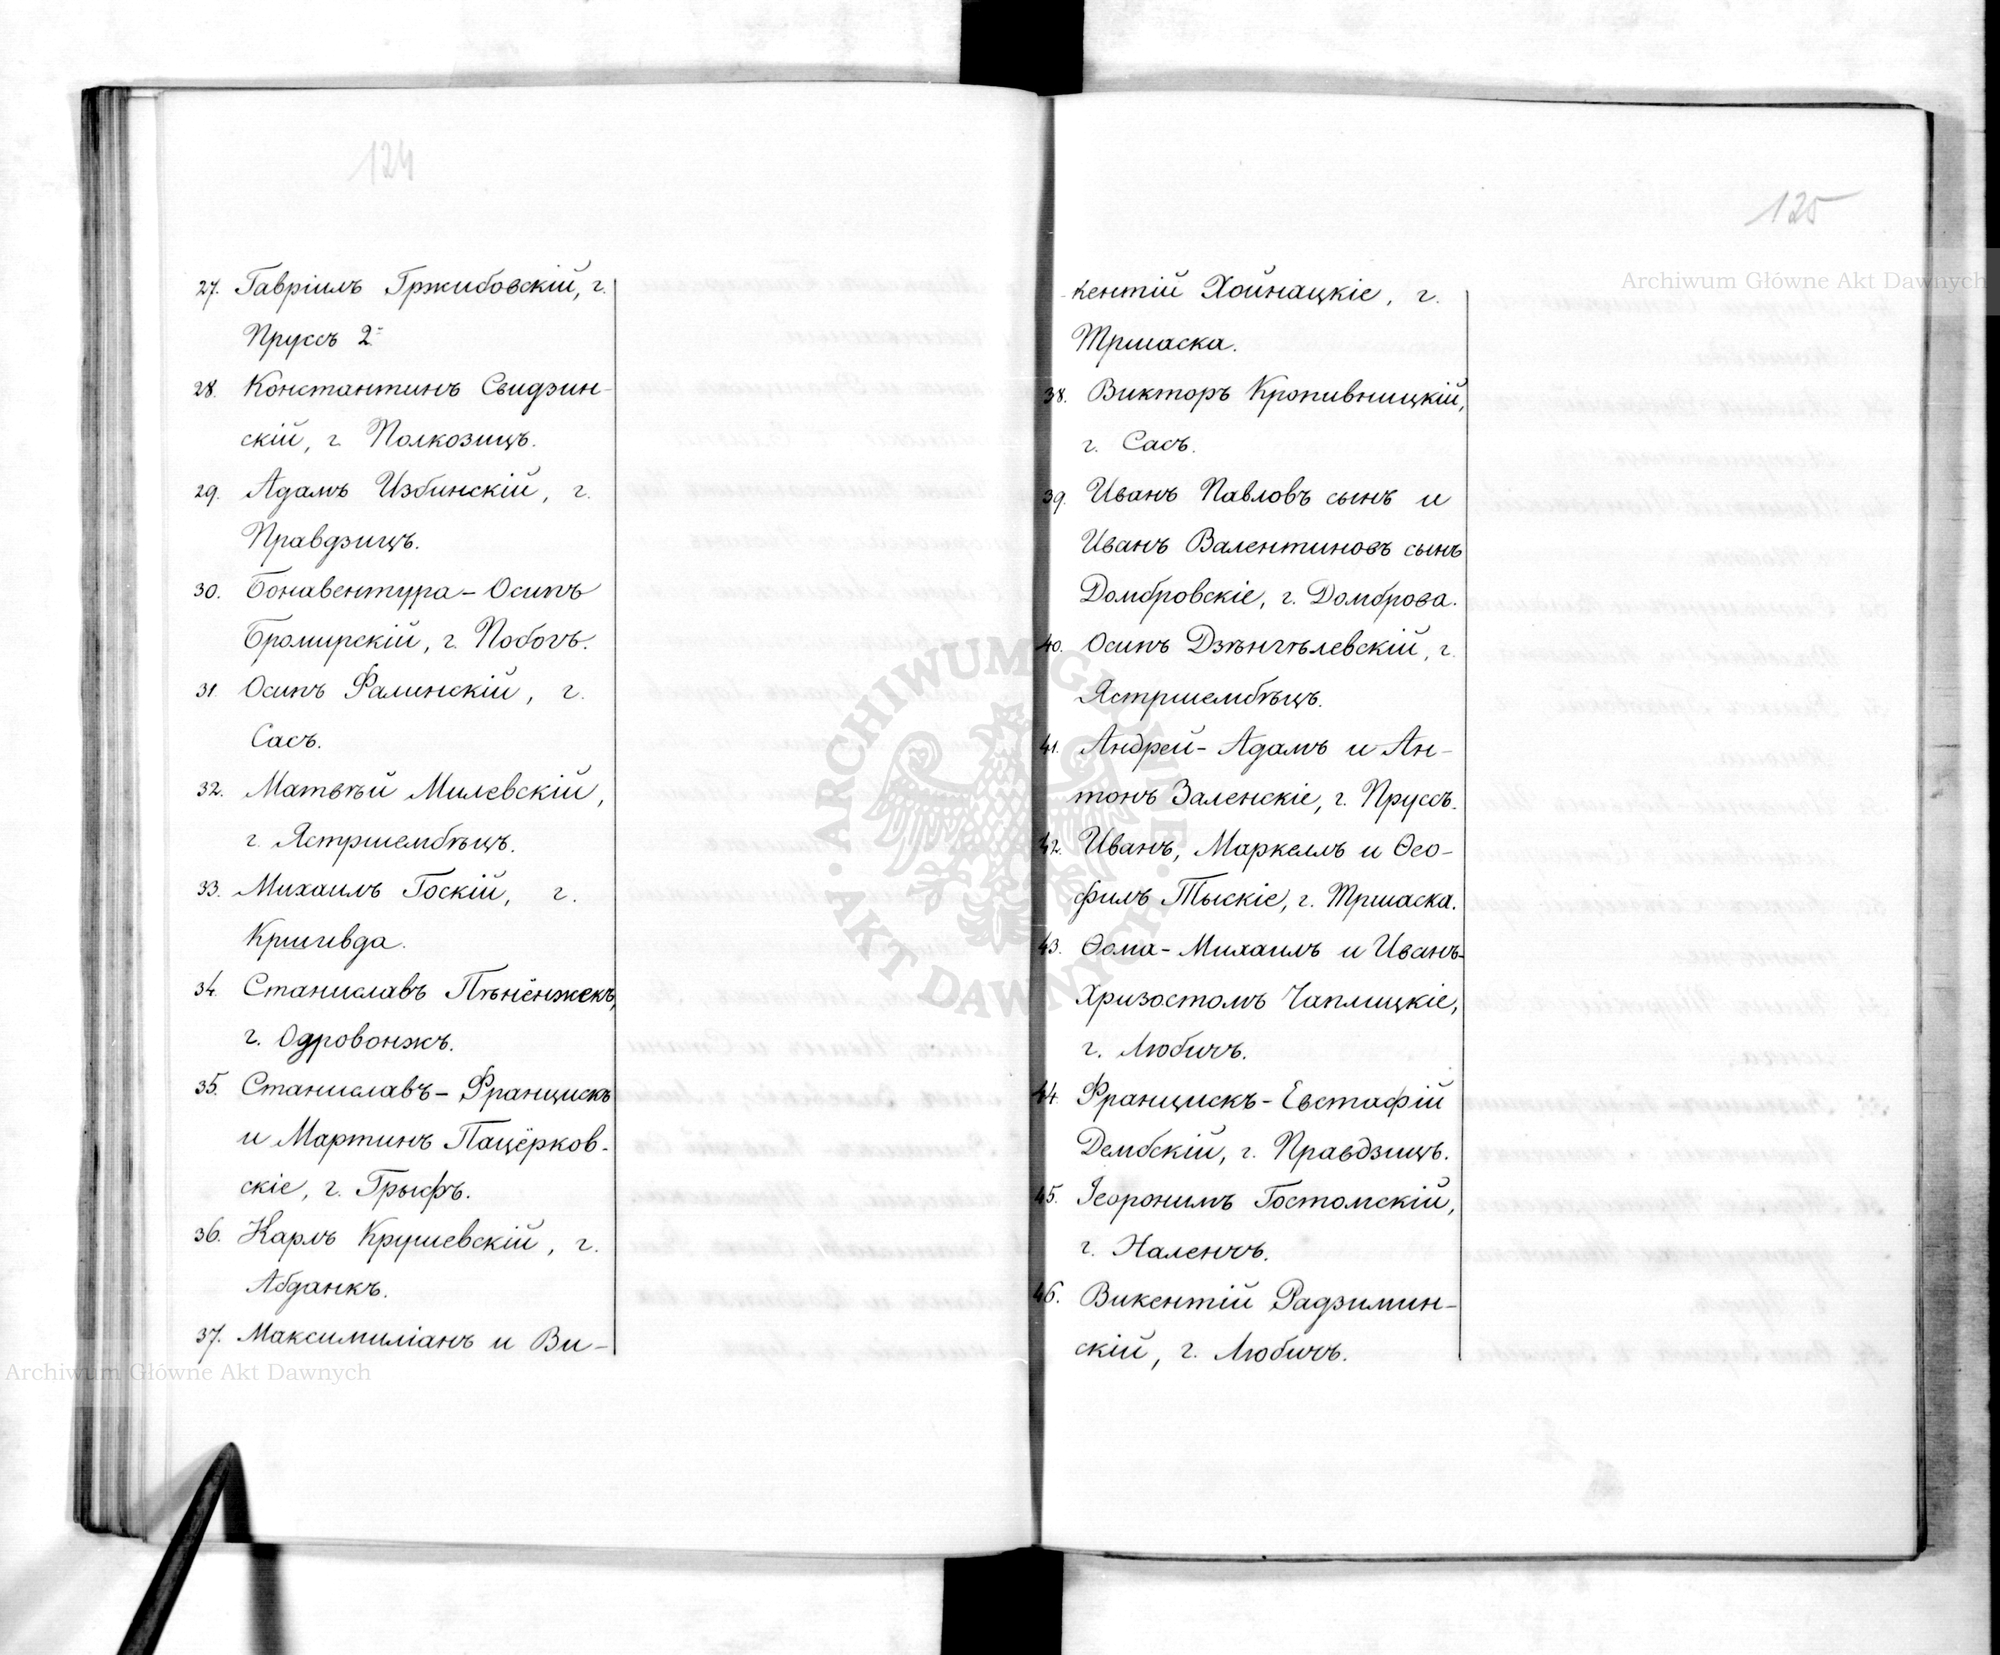 124
27. Гавріилъ Гржибовскій, г.
Пруссъ 2.
28. Константинъ Свидзин-
скій, г. Полкозицъ.
29. Адамъ Избинскій, г.
Правдзицъ.
30. Бонавентура-Осипъ
Бромирскій, г. Побогъ.
31. Осипъ Фалинскій, г.
Сасъ.
32. Матвѣй Милевскій,
г. Ястршембѣцъ.
33. Михаилъ Госкій, г.
Кршивда.
34. Станиславъ Пѣнёнжекъ,
г. Одровонжъ.
35. Станиславъ-Францискъ
и Мартинъ Пацёрков-
скіе, г. Грыфъ.
36. Карлъ Крушевскій, г.
Абданкъ.
37. Максимиліанъ и Ви-
125
кентій Хойнацкіе, г.
Тршаска.
38. Викторъ Кропивницкій,
г. Сасъ.
39. Иванъ Павловъ сынъ и
Иванъ Валентиновъ сынъ
Домбровскіе, г. Домброва.
40. Осипъ Дзѣнгѣлевскій, г.
Ястршембѣцъ.
41. Андрей-Адамъ и Ан-
тонъ Заленскіе, г. Пруссъ.
42. Иванъ, Маркеллъ и Ѳео-
филъ Тыскіе, г. Тршаска.
43. Ѳома-Михаилъ и Иванъ-
Хризостомъ Чаплицкіе,
г. Любичъ.
44. Францискъ-Евстафій
Дембскій, г. Правдзицъ.
45. Іеронимъ Гостомскій,
г. Наленчъ.
46. Викентій Радзимин-
скій, г. Любичъ.
Archiwum Główne Akt Dawnych
Archiwum Główne Akt Dawnych
ARCHIWUM GŁÓWNE AKT DAWNYCH